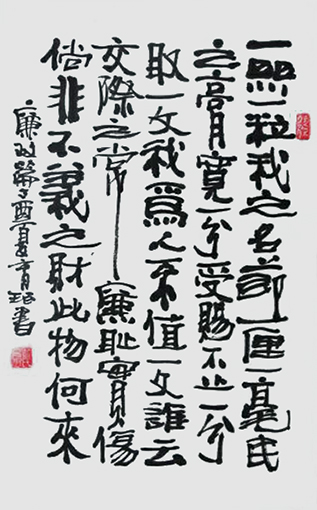 一絲一粒我之名節一厘一毫民
之膏寬一分受賜不止一分
取一文我爲人不值一文誰云
交際之常廉耻實傷
倘非不義之財此物何來
廉政篇丁酉夏書